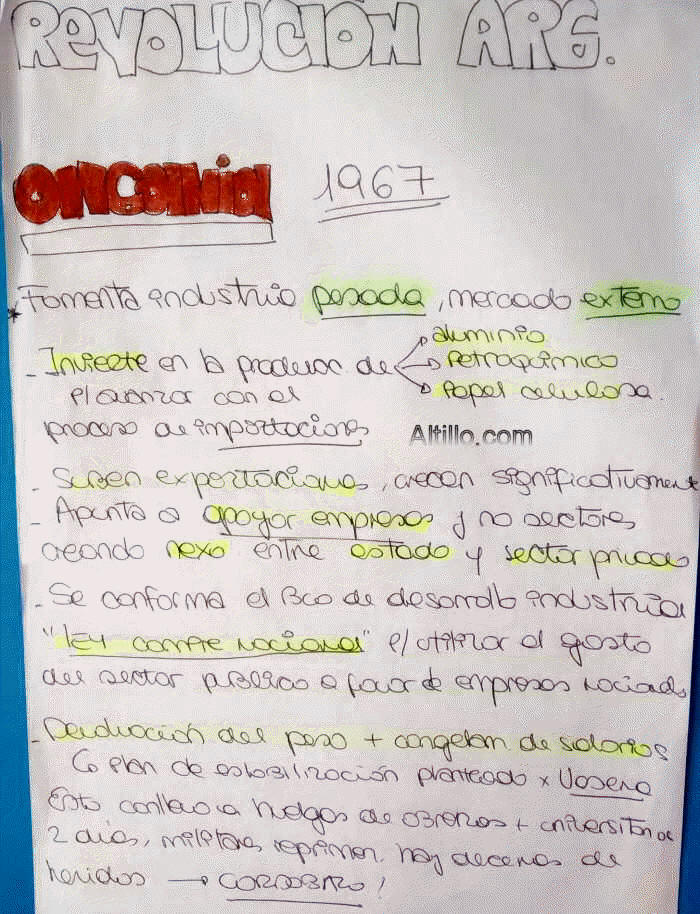 REVOLUCIÓN ARG.
ONGANIA 1967
* Fomenta industria pesada, mercado externo
- Invierte en la produccr de → aluminio
→ Petroquímica
→ Papel celulosa.
p/ avanzar con el
proceso de importaciones
Altillo.com
- Suben exportaciones, crecen significativament
- Apunta a apoyar empresas y no sectores
creando nexo entre estado y sector privado
- Se conforma el Bco de desarrollo industrial
"LEY compre nacional" p/ utilizar el gasto
del sector público a favor de empresas nacionals
- Devaluación del peso + congelam. de salarios
↳ Plan de estabilización planteado x Vasena
Esto conlleva a huelgas de obreros + universitar de
2 días, militares reprimen. hay decenas de
heridos → CORDOBAZO!